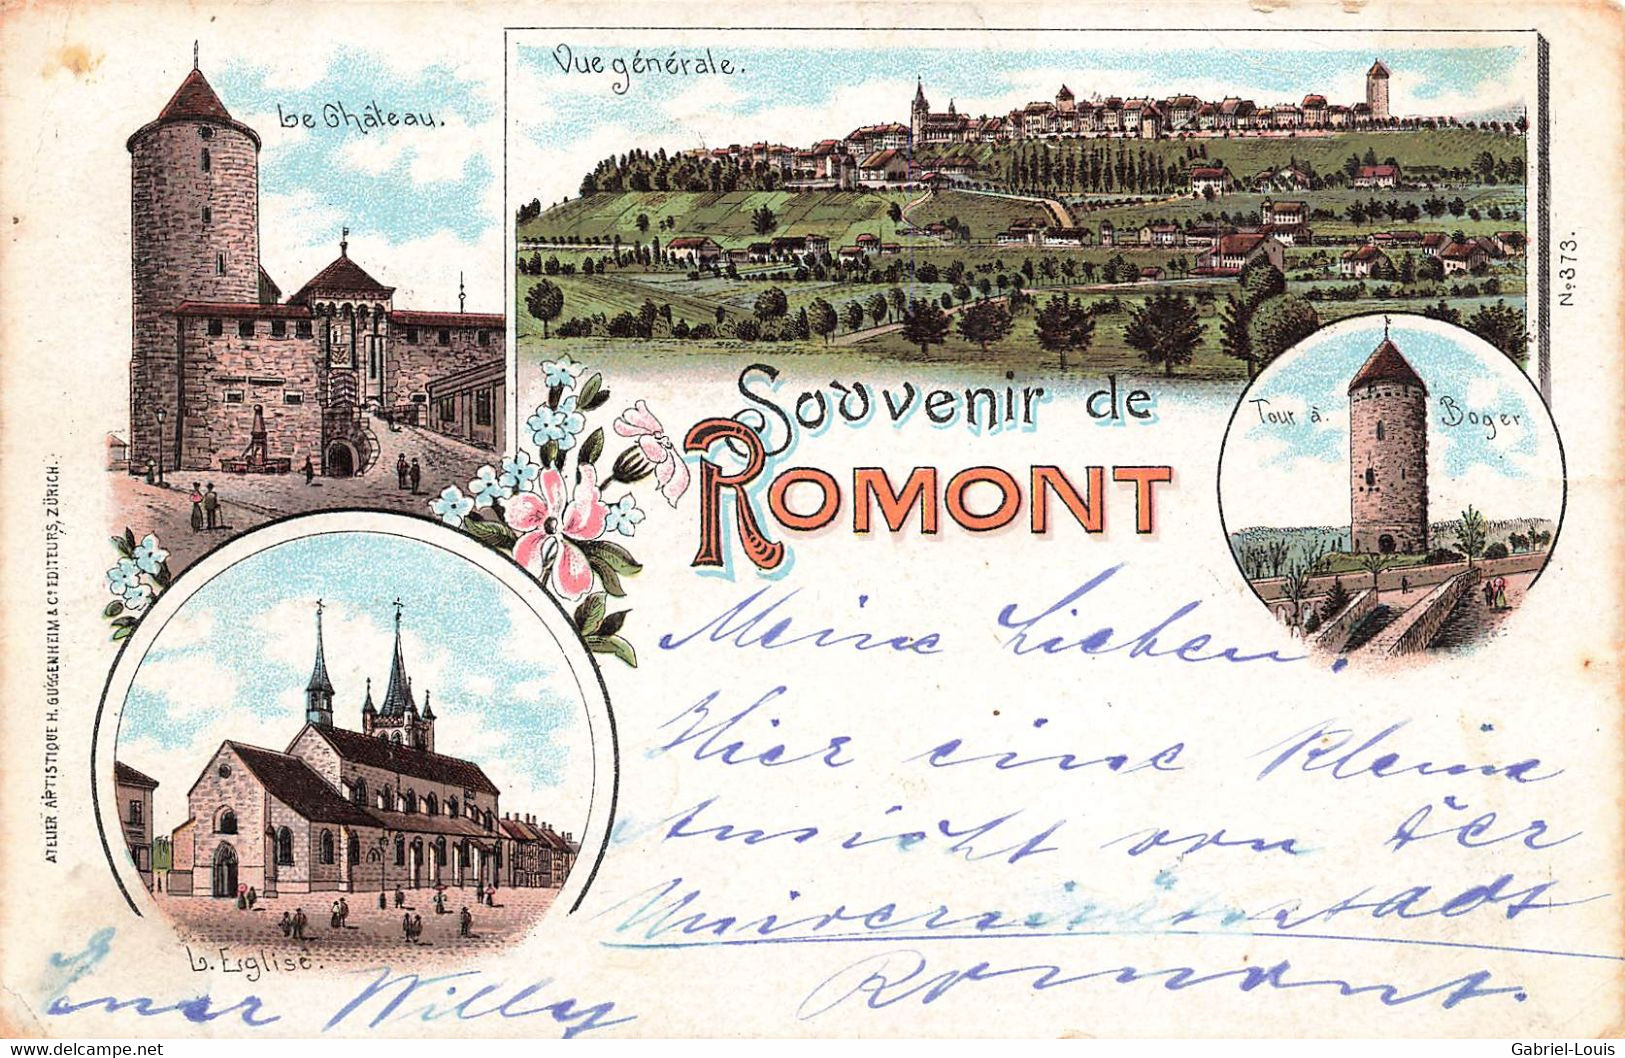 Le Château.
Vue générale.
No. 373.
Souvenir de
ROMONT
Tour à Boger
ATELIER ARTISTIQUE H. GUGGENHEIM & Co EDITEURS, ZÜRICH.
L. Eglise.
Meine Lieben!
Hier eine kleine
Ansicht von der
Universitätsstadt
Romont.
Euer Willy
delcampe.net
Gabriel-Louis